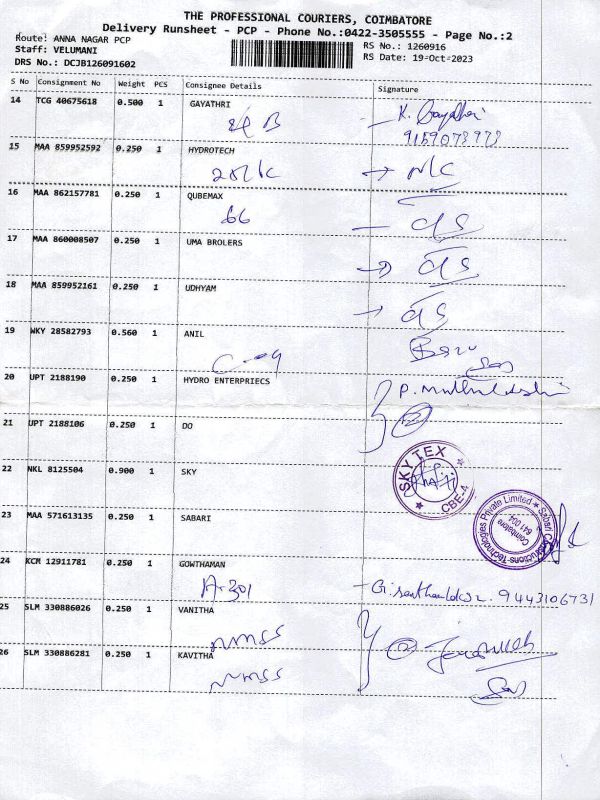 THE PROFESSIONAL COURIERS, COIMBATORE
Delivery Runsheet - PCP - Phone No.:0422-3505555 - Page No.:2
Route: ANNA NAGAR PCP
Staff: VELUMANI
DRS No.: DCJB126091602
RS No.: 1260916
RS Date: 19-Oct-2023
S No Consignment No Weight PCS Consignee Details Signature
14 TCG 40675618 0.500 1 GAYATHRI K. Gayathri
15 MAA 859952592 0.250 1 HYDROTECH
16 MAA 862157781 0.250 1 QUBEMAX
66
17 MAA 860008507 0.250 1 UMA BROLERS
18 MAA 859952161 0.250 1 UDHYAM
19 WKY 28582793 0.560 1 ANIL
C-09
20 UPT 2188190 0.250 1 HYDRO ENTERPRIECS
21 UPT 2188106 0.250 1 DO
22 NKL 8125504 0.900 1 SKY
SKY TEX
CBE-4
23 MAA 571613135 0.250 1 SABARI
Sabari Constructions-Technologies Private Limited
Coimbatore
641 004
24 KCM 12911781 0.250 1 GOWTHAMAN
A-301 9443106731
25 SLM 330886026 0.250 1 VANITHA
26 SLM 330886281 0.250 1 KAVITHA